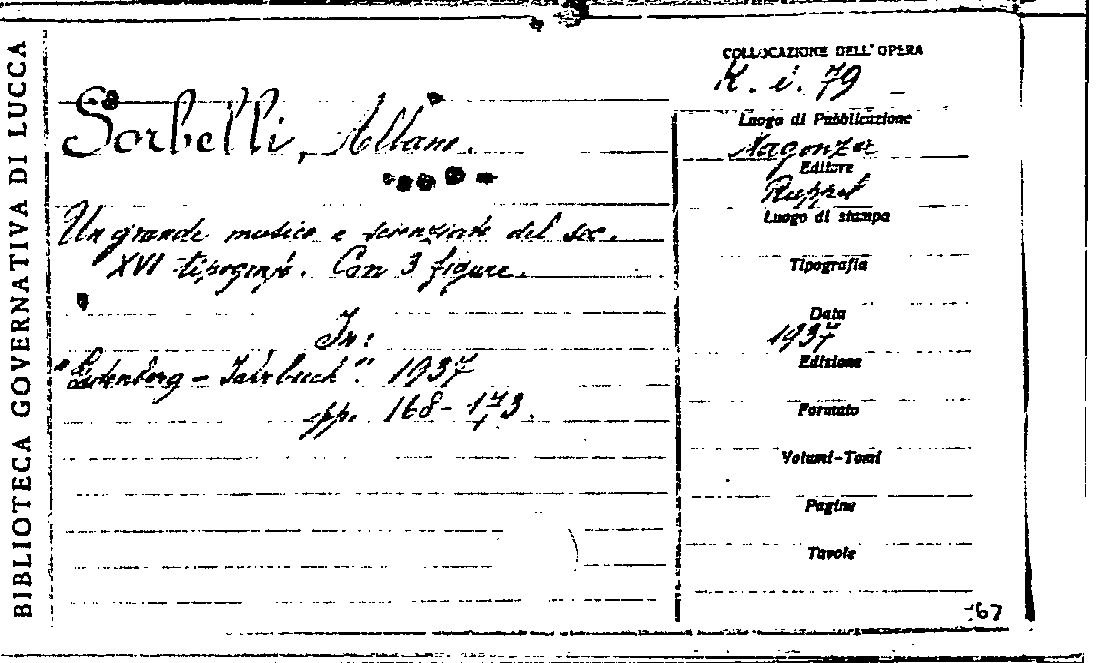 BIBLIOTECA GOVERNATIVA DI LUCCA
Sorbelli, Albano.
Un grande musico e scienziato del sec.
XVI tipografo. Con 3 figure.
In:
"Gutenberg - Jahrbuch". 1937
pp. 168-173.
COLLOCAZIONE DELL'OPERA
K. i. 79
Luogo di Pubblicazione
Magonza
Editore
Ruppel
Luogo di stampa
Tipografia
Data
1937
Edizione
Formato
Volumi-Tomi
Pagine
Tavole